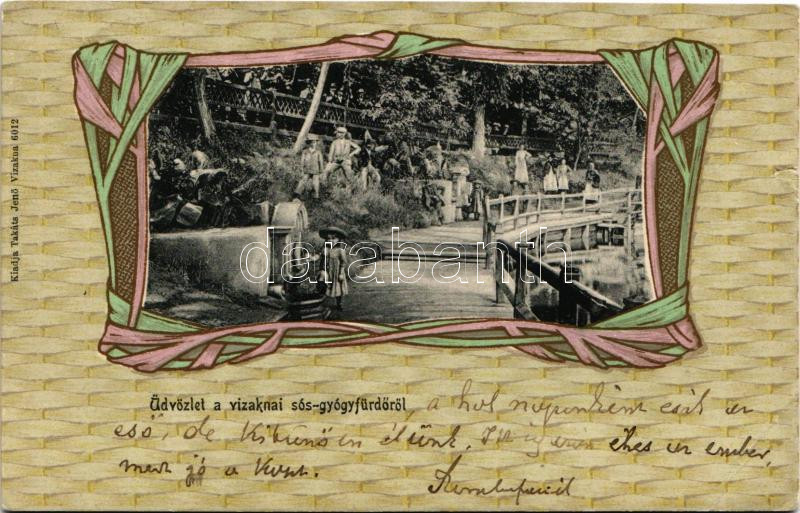 Kiadja Takáts Jenő Vizakna 6012
darabanth
Üdvözlet a vizaknai sós-gyógyfürdőről
, a hol naponként esik az
eső, de kitünően élünk. Itt igazán éhes az ember,
mert jó a koszt.